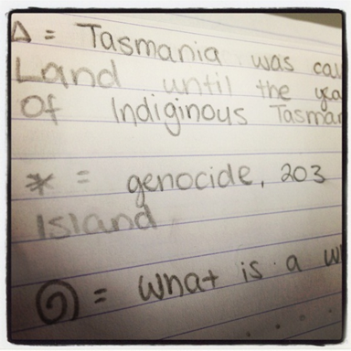 Δ = Tasmania was
Land until the
Of Indiginous
* = genocide, 203
Island
= What is a